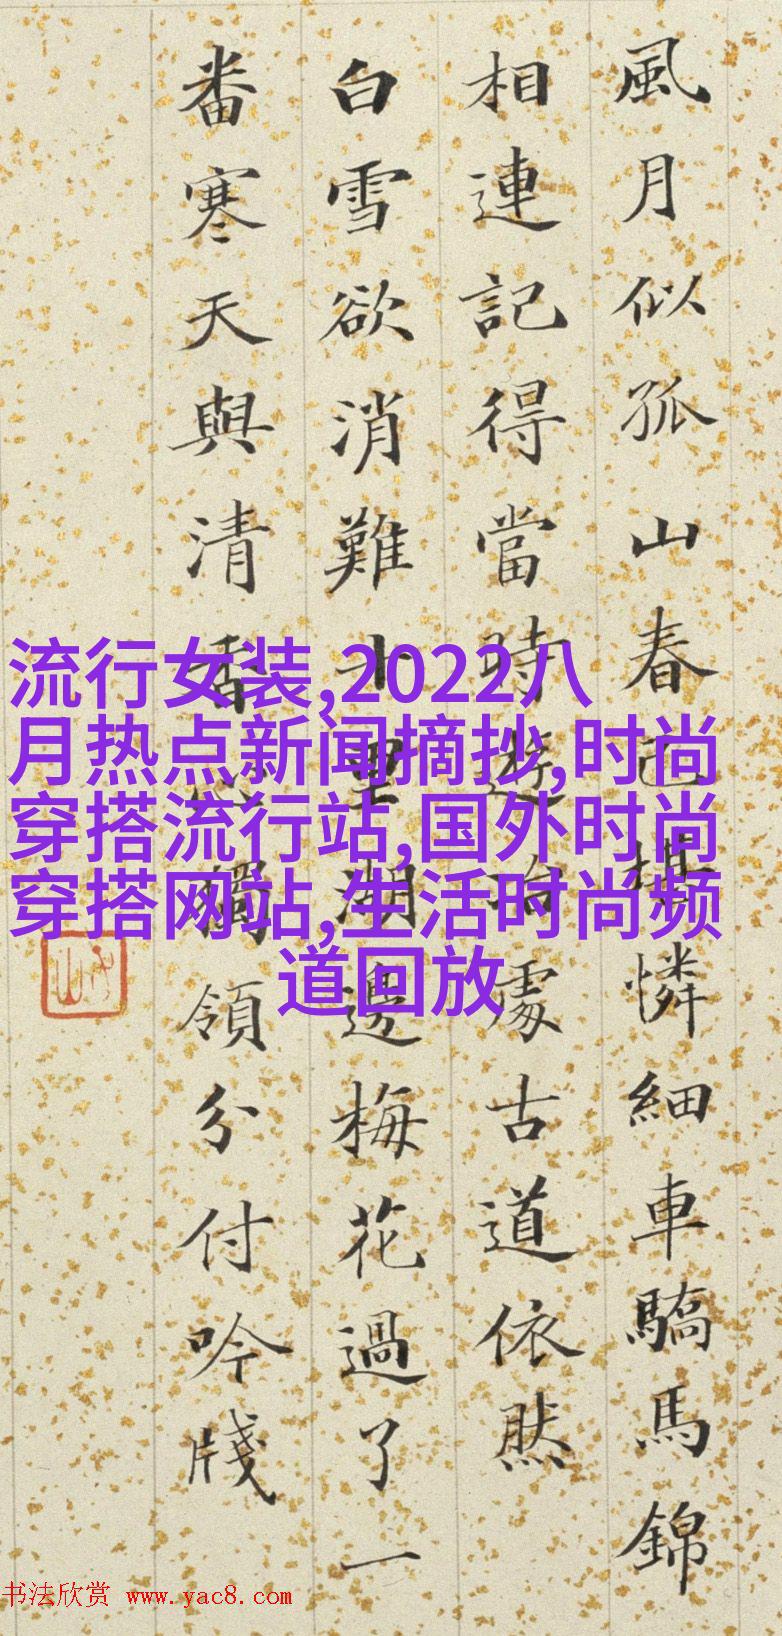 風月似孤山春已堪憐細車驕馬錦
相連記得當時遊冶處古道依然
白雪欲消難十里湖邊梅花過了一
番寒天與清香心獨領分付吟牋
流行女装,2022八
月热点新闻摘抄,时尚
穿搭流行站,国外时尚
穿搭网站,生活时尚频
道回放
书法欣赏 www.yac8.com